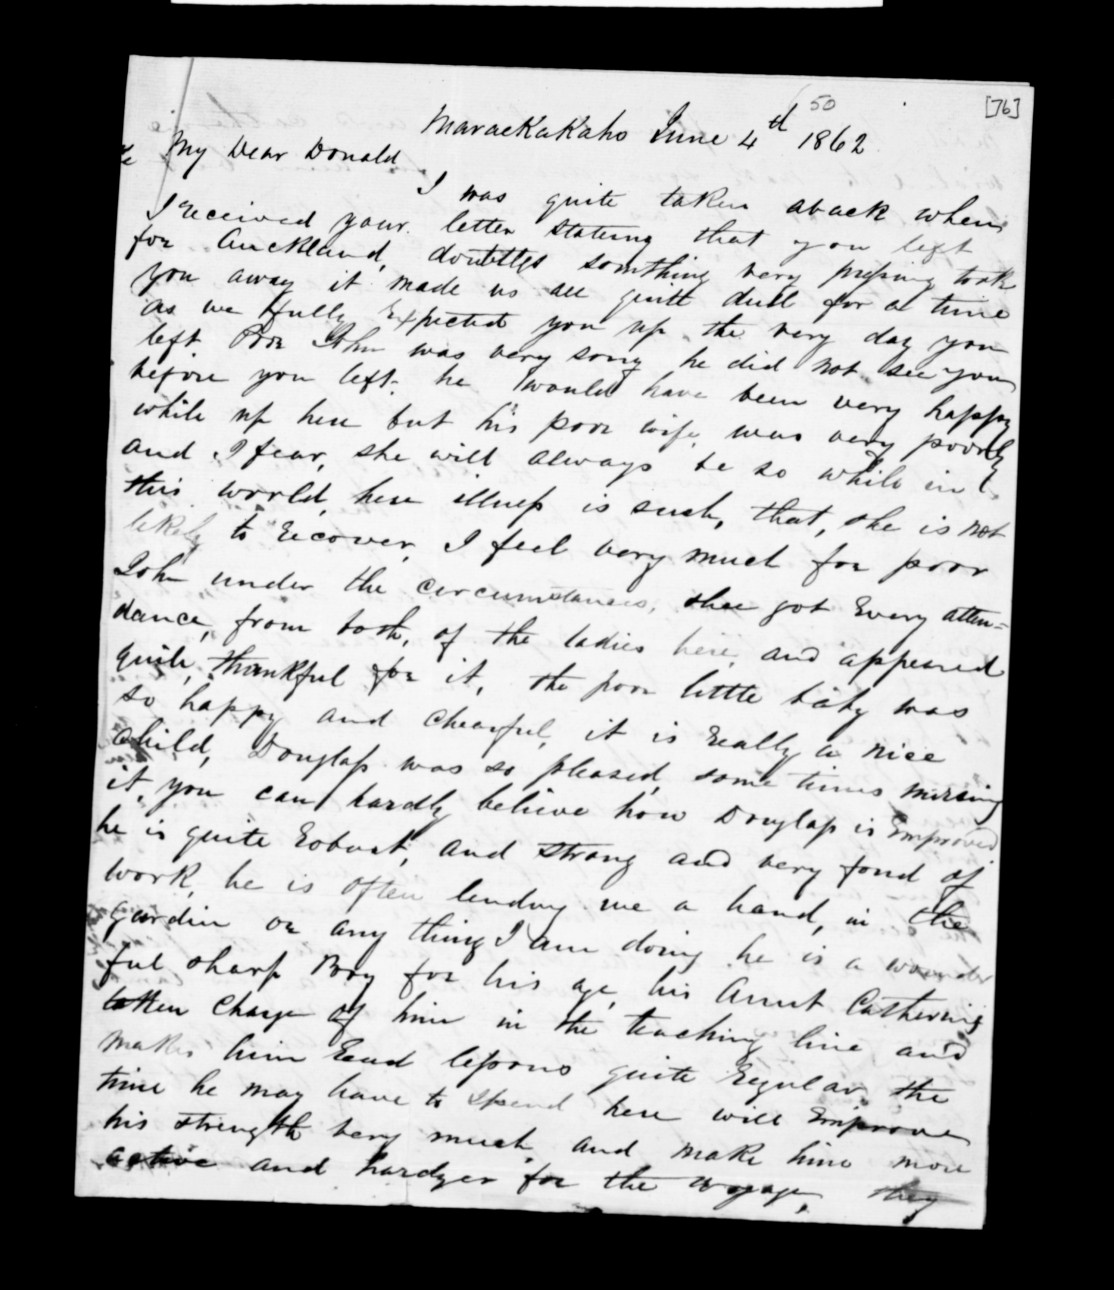 50
[76]
Maraekakaho June 4th 1862
My Dear Donald
I was quite taken aback when
I received your letter stating that you left
for Auckland, doubtless somthing very pressing took
you away it made us all quitt dull for a time
as we fully Expected you up the very day you
left Poor John was very sorry he did not see you
before you left. he would have been very happy
while up here but his poor wife, was very poorly
and I fear, she will always be so while in
this world, here illness is such, that, she is not
likely to recover, I feel very much for poor
John under the circumstances, shee got Every atten=
dance, from both, of the ladies here, and appeared
quite, thankful for it, the poor little baby was
so happy and chearful, it is really a nice
child, Douglass was so pleased, some times nursing
it, you can hardly believe how Douglass is Emproved
he is quite robust, and strong and very fond of
work he is often lending me a hand, in the
gardin or any thing I am doing he is a wounder
ful sharp Boy for his age, his Aunt Catherin's
takken Charge of him in the teaching line and
makes him read lessons quite regular, the
time he may have to spend here will Emprove
his strength very much and make him more
active and hardyer for the voyage, they